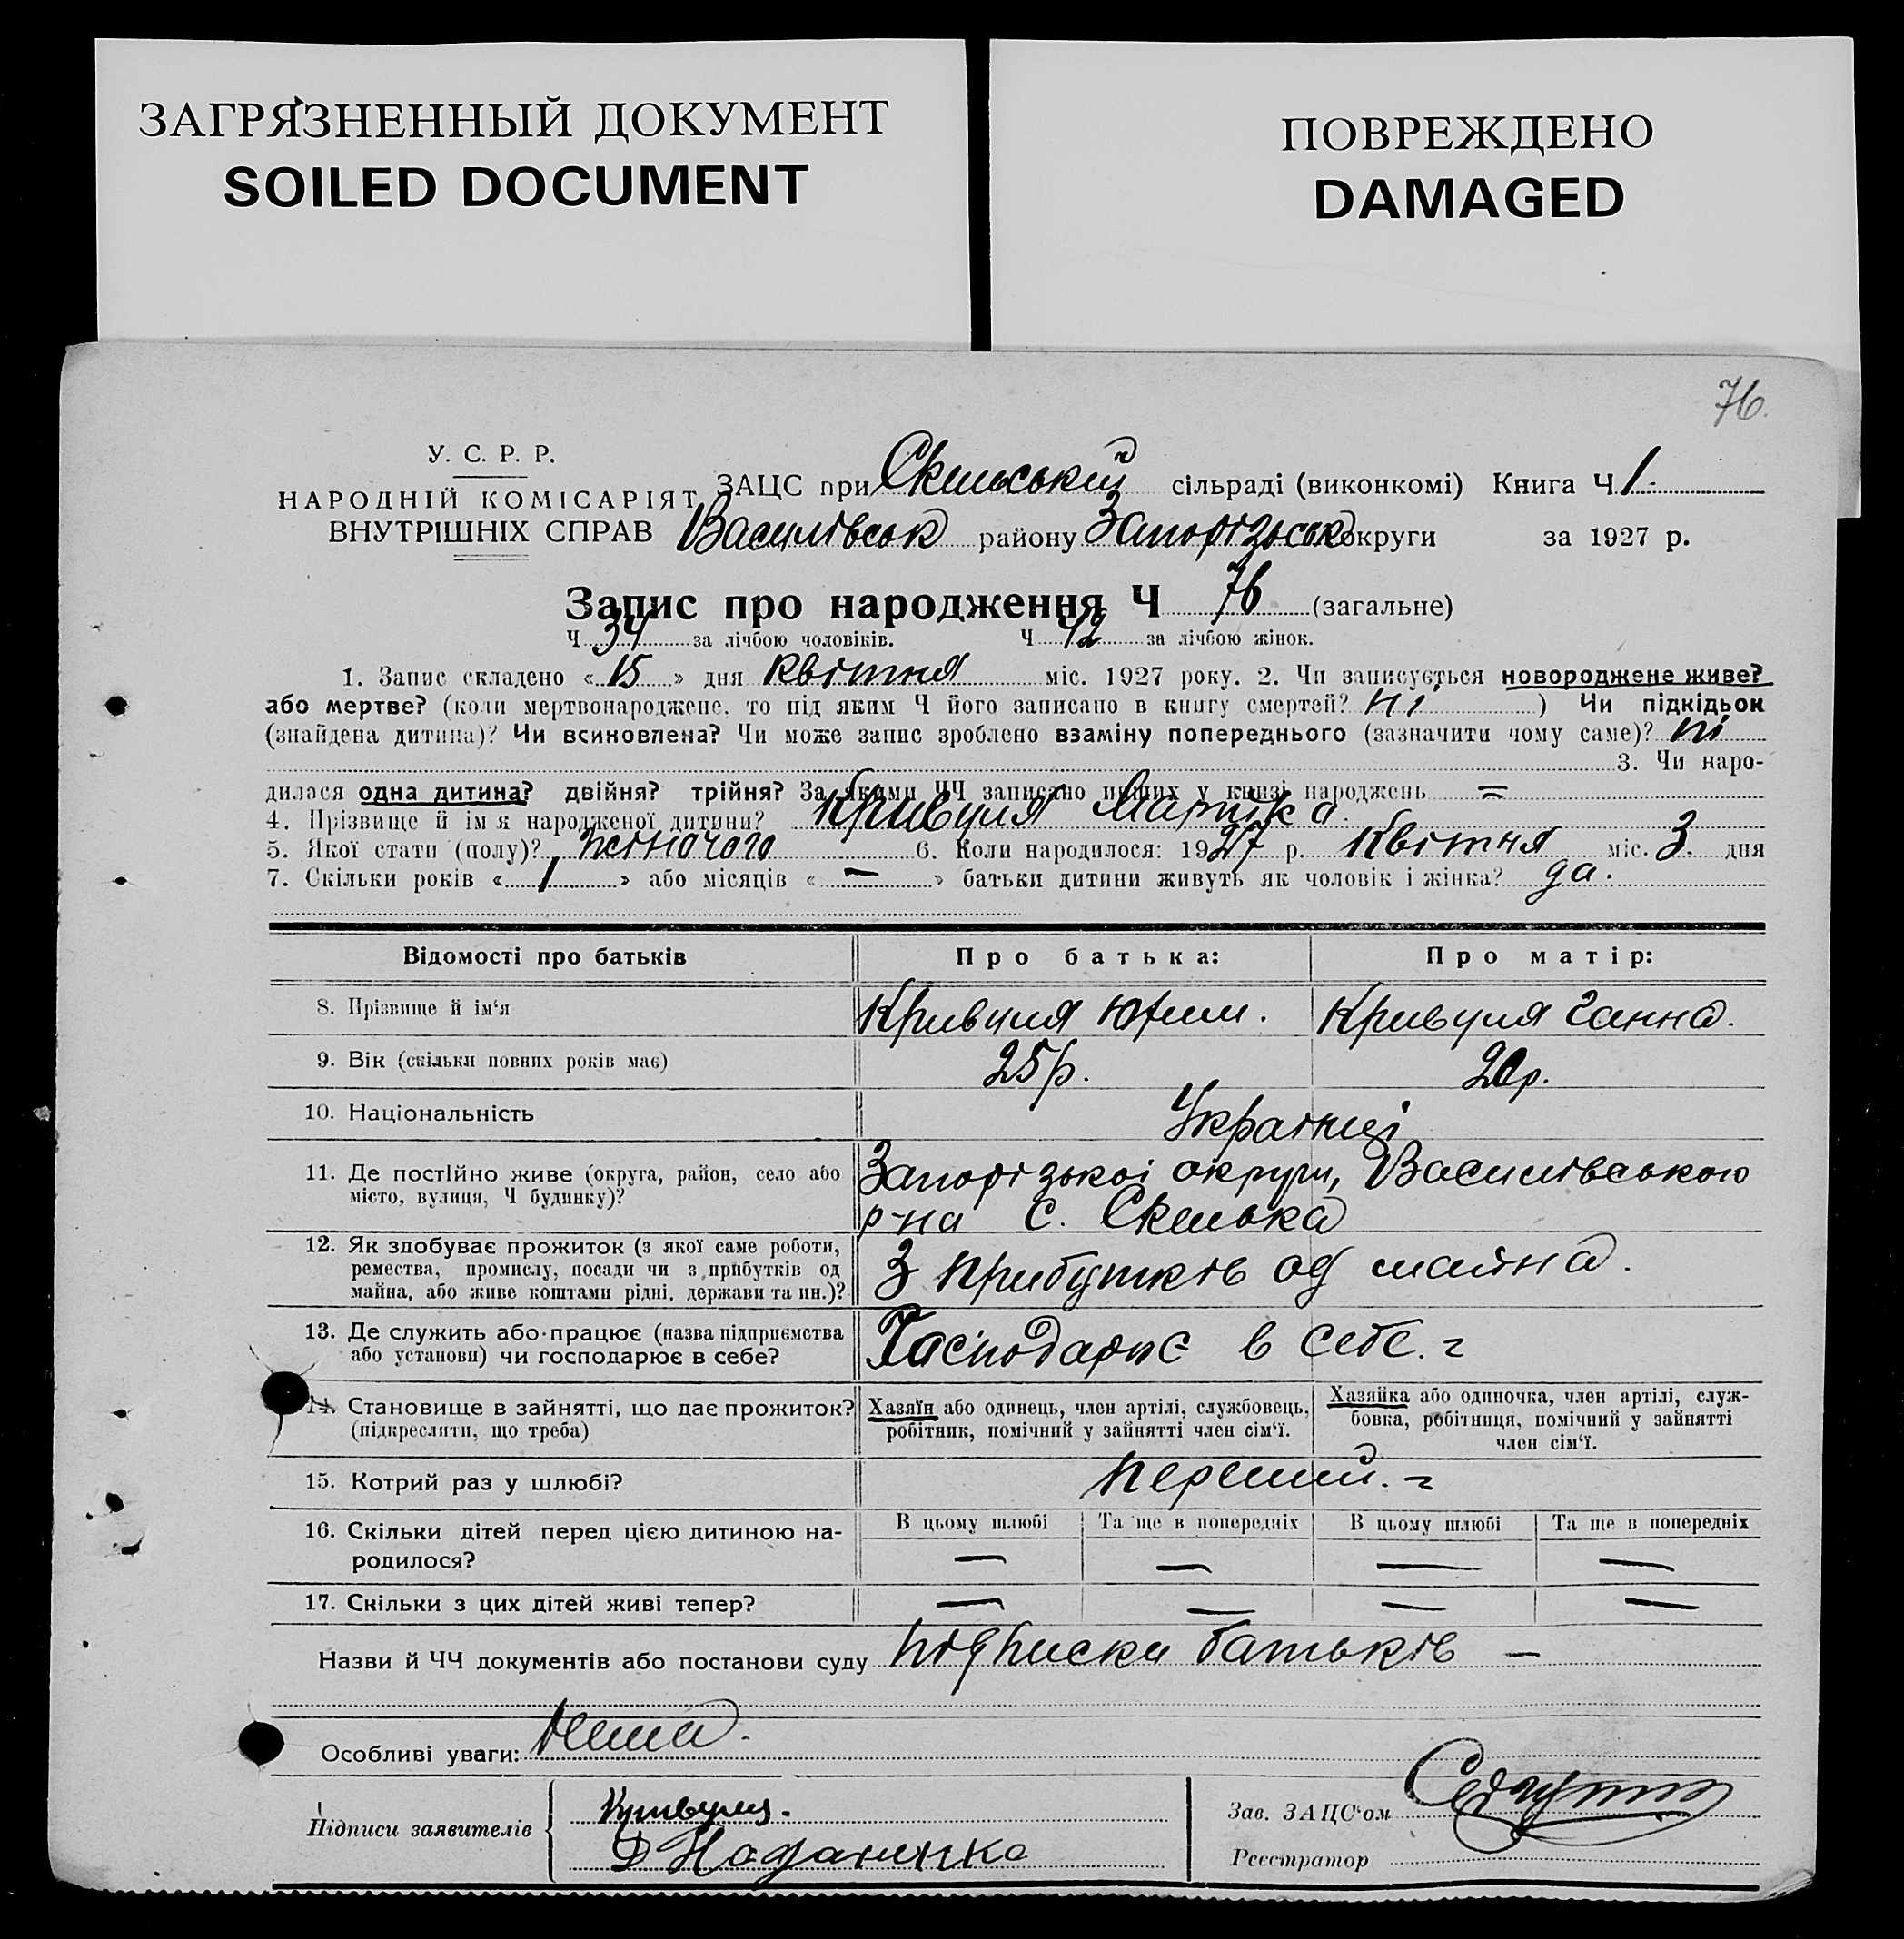 ЗАГРЯЗНЕННЫЙ ДОКУМЕНТ
SOILED DOCUMENT
ПОВРЕЖДЕНО
DAMAGED
76.
У. С. Р. Р.
НАРОДНІЙ КОМІСАРІЯТ
ВНУТРІШНІХ СПРАВ
ЗАЦС при Скельській сільраді (виконкомі) Книга Ч 1.
Василівськ району Запорізьск округи за 1927 р.
Запис про народження Ч 76 (загальне)
Ч 34 за лічбою чоловіків. Ч 42 за лічбою жінок.
1. Запис складено « 15 » дня квітня міс. 1927 року. 2. Чи записується новороджене живе?
або мертве? (коли мертвонароджене, то під яким Ч його записано в книгу смертей? ні ) Чи підкідьок
(знайдена дитина)? Чи всиновлена? Чи може запис зроблено взаміну попереднього (зазначити чому саме)? ні
3. Чи наро-
дилася одна дитина? двійня? трійня? За якими ЧЧ записано инших у книзі народжень =
4. Прізвище й ім я народженої дитини? Кривуля Марійка.
5. Якої стати (полу)? жіночого 6. Коли народилося: 1927 р. Квітня міс. 3. дня
7. Скільки років « 1 » або місяців « — » батьки дитини живуть як чоловік і жінка? да.
Відомості про батьків Про батька: Про матір:
8. Прізвище й ім'я Кривуля Юхим. Кривуля Ганна.
9. Вік (скільки повних років має) 25 р. 20 р.
10. Національність Українці
11. Де постійно живе (округа, район, село або Запорізькоі округи, Василівського
місто, вулиця, Ч будинку)? р-на с. Скелька
12. Як здобуває прожиток (з якої саме роботи,
ремества, промислу, посади чи з прибутків од З прибутків од майна.
майна, або живе коштами рідні, держави та ин.)?
13. Де служить або працює (назва підприємства
або установи) чи господарює в себе? Господарює в себе.
14. Становище в зайнятті, що дає прожиток? Хазяїн або одинець, член артілі, службовець, Хазяйка або одиночка, член артілі, служ-
(підкреслити, що треба) робітник, помічний у зайнятті член сім'ї. бовка, робітниця, помічний у зайнятті
член сім'ї.
15. Котрий раз у шлюбі? перший.
16. Скільки дітей перед цією дитиною на- В цьому шлюбі Та ще в попередніх В цьому шлюбі Та ще в попередніх
родилося? — — — —
17. Скільки з цих дітей живі тепер? — — — —
Назви й ЧЧ документів або постанови суду підписки батьків —
Особливі уваги: Нема.
Підписи заявителів
Кривуля.
Зав. ЗАЦС'ом
Реєстратор